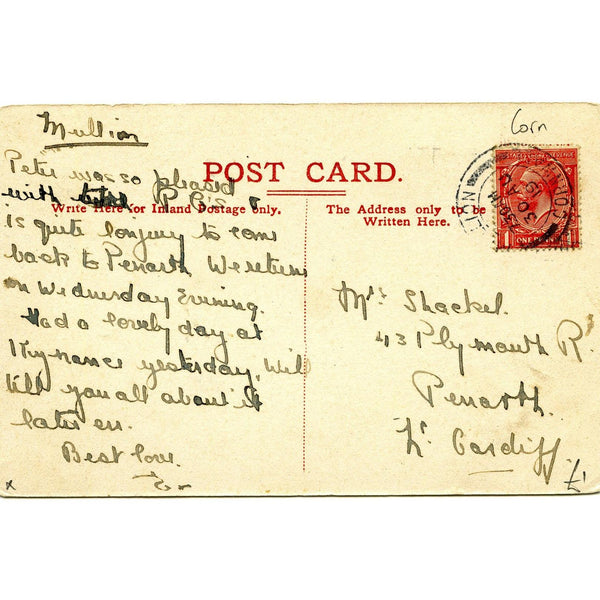 Corn
Mullion
POST CARD.
Write Here for Inland Postage only.
The Address only to be
Written Here.
Peter was so pleased
with P.P.Cs. &
is quite longing to come
back to Penarth We return
on Wednesday Evening.
Had a lovely day at
Kynance yesterday, Will
tell you all about it
later on.
Best love.
Mrs Shackel.
43 Plymouth R.
Penarth.
Nr Cardiff
ONE PENNY
30 AU
£1
x